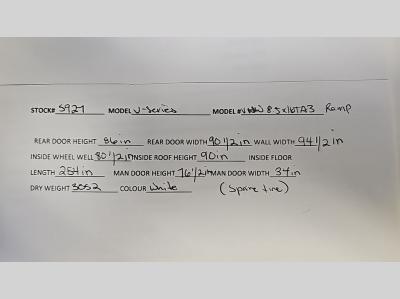 STOCK# 5927 MODEL V-Series MODEL# 8.5x16TA3 Ramp
REAR DOOR HEIGHT 86 in REAR DOOR WIDTH 90 1/2 in WALL WIDTH 94 1/2 in
INSIDE WHEEL WELL 80 1/2 in INSIDE ROOF HEIGHT 90 in INSIDE FLOOR
LENGTH 254 in MAN DOOR HEIGHT 76 1/2 in MAN DOOR WIDTH 34 in
DRY WEIGHT 3052 COLOUR White (Spare tire)